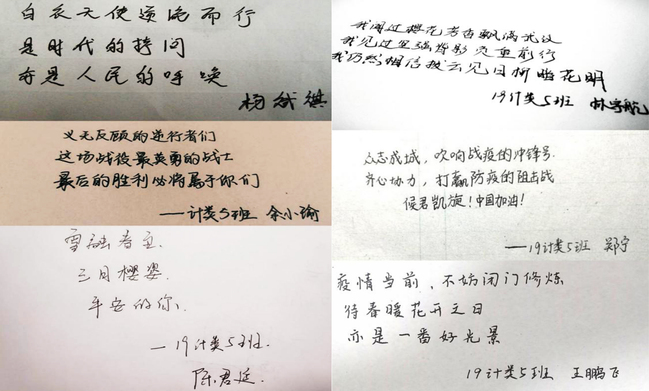 白衣天使逆流而行
是时代的拷问
亦是人民的呼唤
杨斌祺
义无反顾的逆行者们
这场战役最英勇的战士
最后的胜利必将属于你们
——计类5班 余小瑜
雪融春至.
三月樱姿.
平安的你.
—19计类5班.
陈君延.
我闻过樱花芳香飘满武汉
我见过坚强背影负重前行
我仍然相信拨云见日柳暗花明
19计类5班 林宇航
众志成城，吹响战疫的冲锋号.
齐心协力，打赢防疫的阻击战
候君凯旋！中国加油！
——19计类5班 郑宁
疫情当前，不妨闭门修炼
待春暖花开之日
亦是一番好光景
19计类5班 王鹏飞